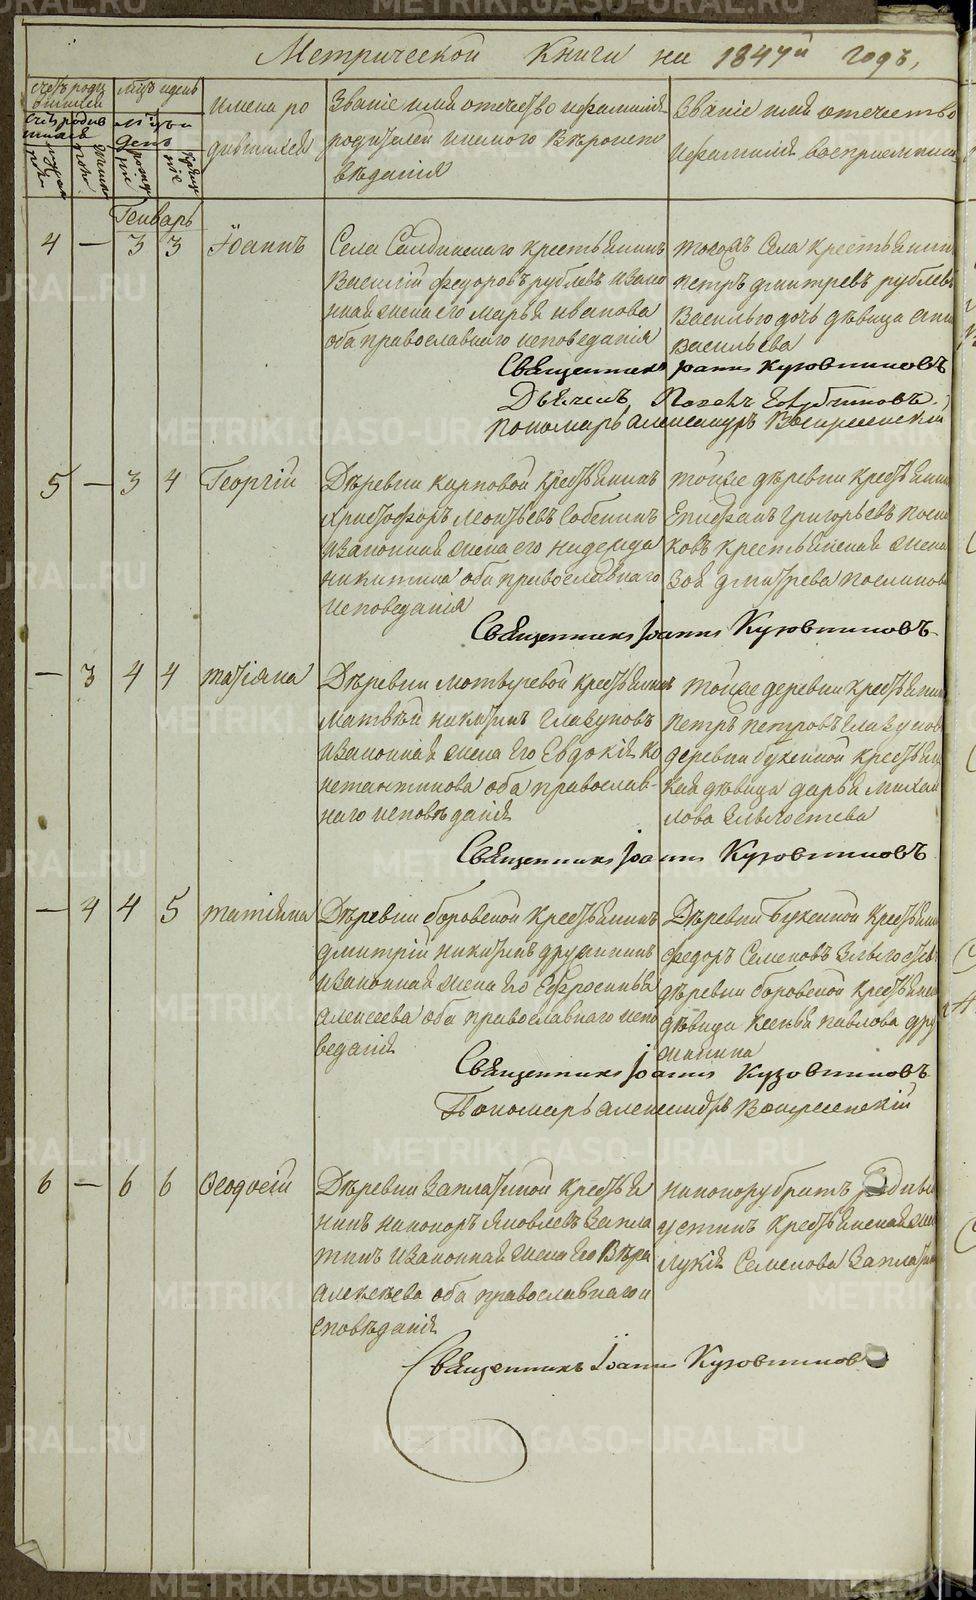 Метрической Книги на 1847й годъ,
счетъ родившихся
мѣсяцъ и день
имена родившихся
Званіе имя отечество и фамилія родителей и какого вѣроисповѣданія
Званіе имя отечество и фамилія восприемниковъ
Генварь
4 — 3 3 Іоаннъ
Села Салдинскаго крестьянинъ
Василій федоровъ рублевъ и закон
ная жена его марья иванова
оба православнаго исповеданія
тогожъ Села крестьянинъ
петръ дмитревъ рублевъ
Василья дочь дѣвица анна
васильева
Священникъ Іоаннъ Кузовниковъ
Дьяченъ Павелъ
Пономарь александръ Воскресенскій
5 — 3 4 Георгій
Деревни карповой крестьянинъ
Христофоръ Леонтьевъ Собенинъ
и законная жена его надежда
никитина оба православнаго
исповеданія
тойже деревни крестьянинъ
Епифанъ Григорьевъ
ковъ крестьянская жена
Зоя дмитрева
Священникъ Іоаннъ Кузовниковъ
— 3 4 4 татіана
Деревни мотвеевой крестьянинъ
матвей никитинъ главуновъ
и законная жена его Евдокія Ко
нстантинова оба православ-
наго исповѣданія
тойже деревни крестьянинъ
петръ петровъ главунов
деревни букиной крестьян
кая дѣвица дарья михай
лова
Священникъ Іоаннъ Кузовниковъ
— 4 4 5 татіяна
Деревни боровской крестьянинъ
дмитрій никитинъ дружининъ
и законная жена его Ефросинья
алексеева оба православнаго испо
веданія
Деревни Букиной крестьянинъ
федоръ Семеновъ
деревни боровской крестьянская
дѣвица ксенья павлова дру
жинина
Священникъ Іоаннъ Кузовниковъ
Пономарь александръ Воскресенскій
6 — 6 6 Феодосій
Деревни Заплатиной крестья
нинъ никоноръ яковлевъ Запла
тинъ и законная жена его Вѣра
алексѣева оба православнаго и
сповѣданія
никоноръ братъ
устинъ крестьянская жена
лукія Семенова Заплатина
Священникъ Іоаннъ Кузовников
METRIKI.GASO-URAL.RU